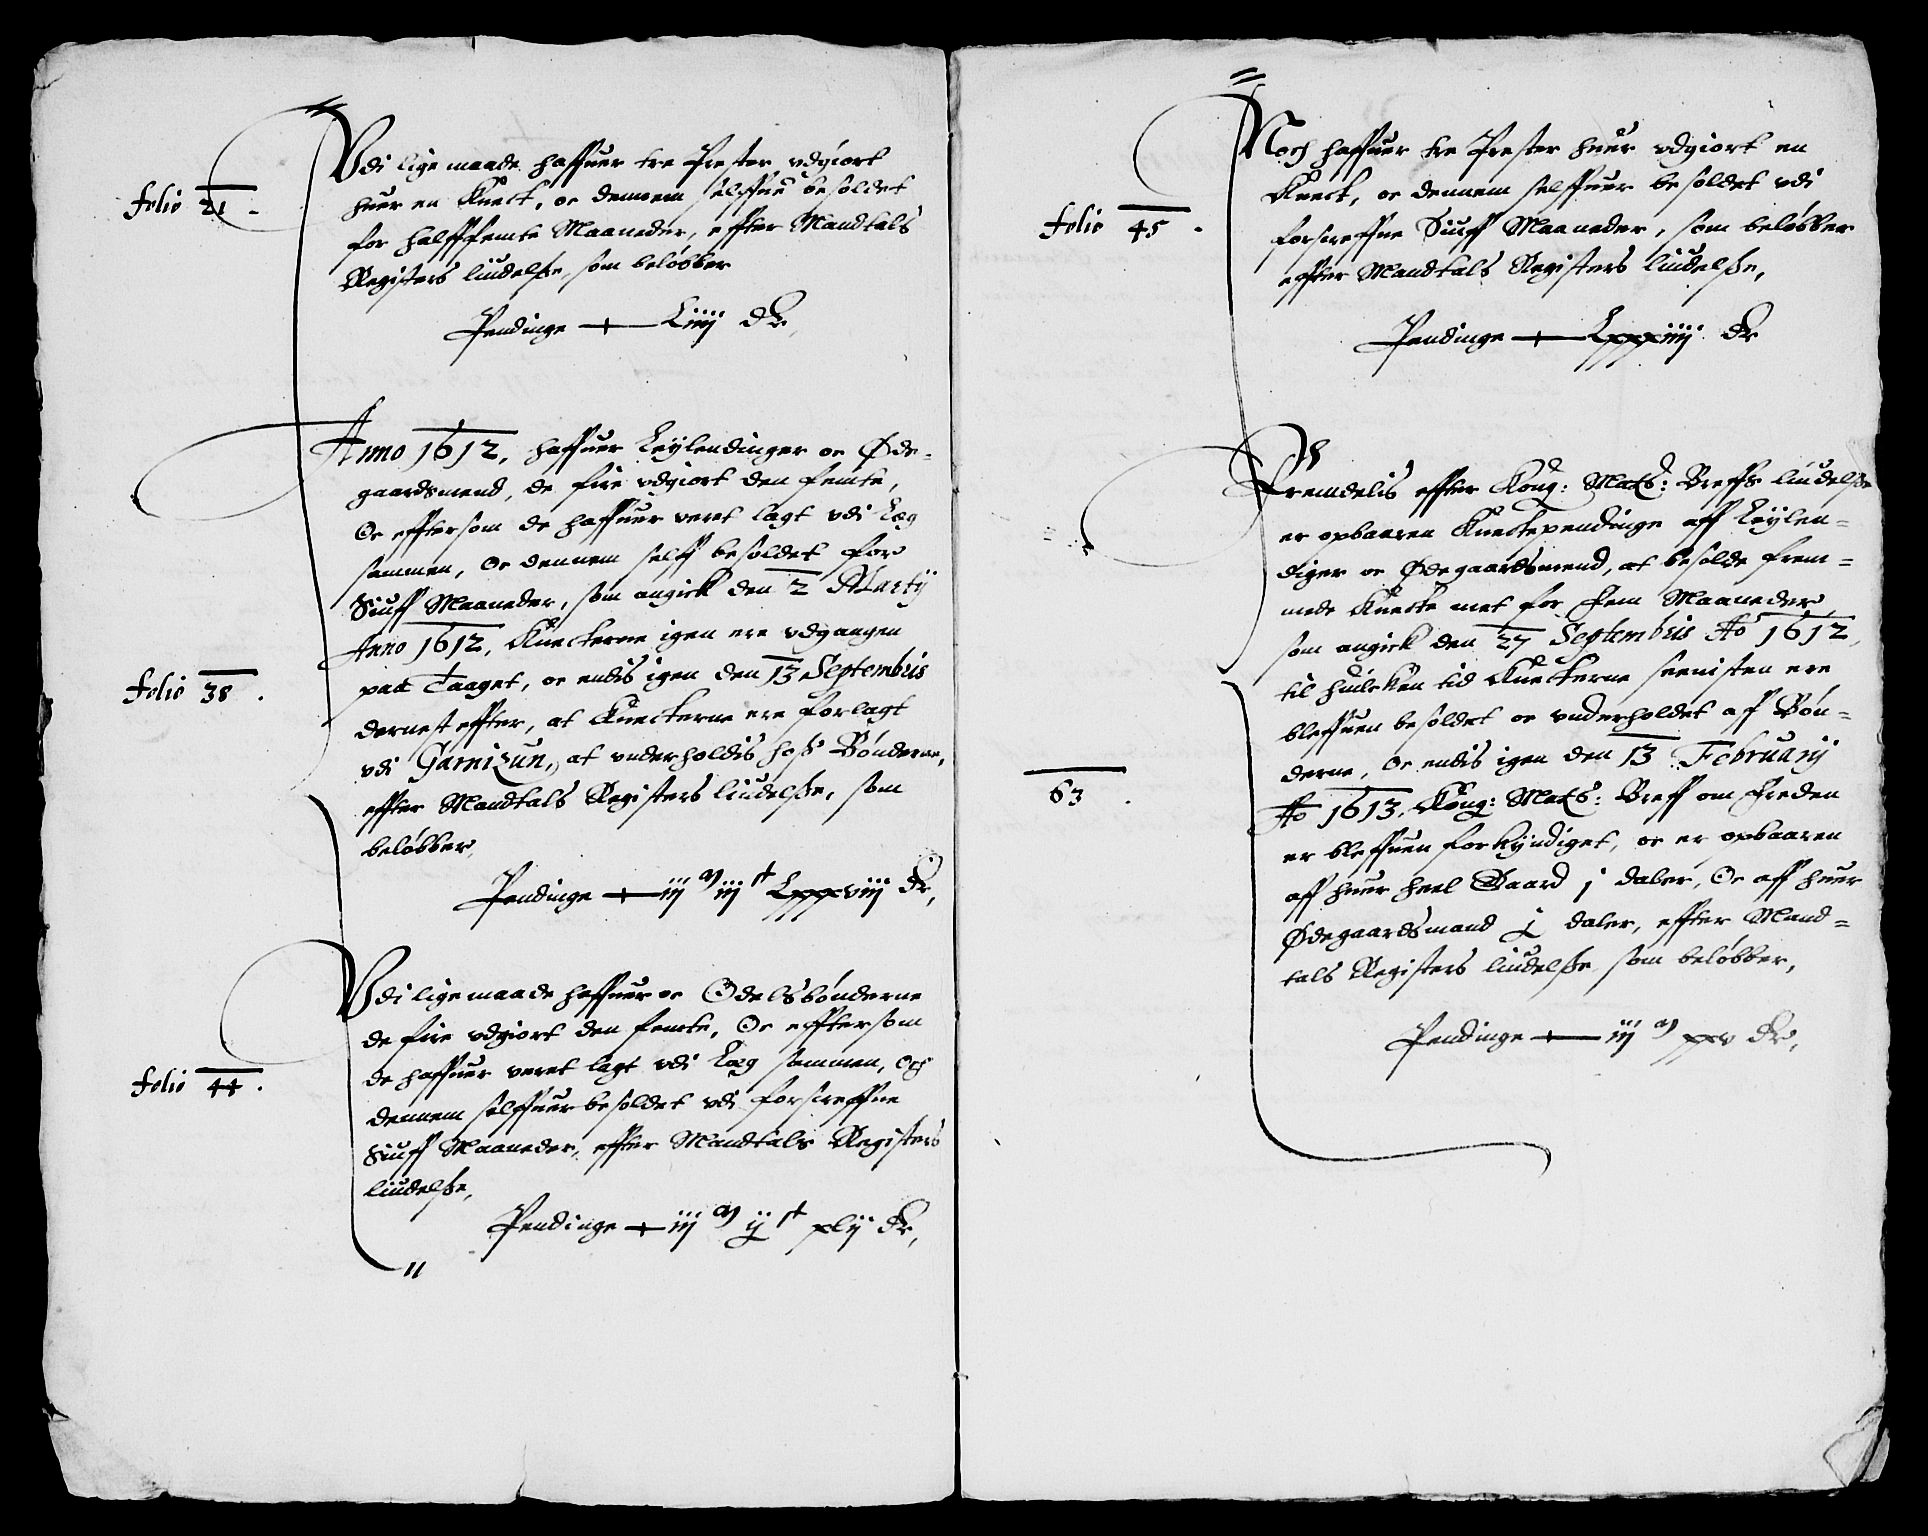 Vdi lige maade haffuer tre Prester vdgiort
folio 21.
huer en Knect, oc dennem selffue besoldet
for halfffemte Maaneder, effter Mandtals
Registers liudelße, som beløbber
Pendinge — Liiij dr.
Anno 1612, haffuer Leylendinger oc Øde-
gaardsmend, de fire vdgiort den femte,
Oc efftersom de haffuer veret lagt vdi Læg
sammen, Oc dennem selff besoldet for
Siuff Maaneder, som angick den 2 Martij
Anno 1612, Knecterne igen ere vdgangen
folio 38.
paa Taaget, oc endis igen den 13 Septembris
dernest effter, at Knecterne ere forlagt
vdi Garnizun, at vnderholdis hoß Bønderne,
effter Mandtals Registers liudelße, som
beløbber,
Pendinge — iij M iij C Lxxxviij dr,
Vdi lige maade haffuer oc Odelsbønderne
de fire vdgiort den femte, Oc efftersom
folio 44.
de haffuer veret lagt vdi Læg sammen, Och
dennem selffuer besoldet vdi forscreffne
Siuff Maaneder, effter Mandtals Registers
liudelße,
Pendinge — iij M ij C xlij dr,
Noch haffuer tre Prester huer vdgiort en
Knect, oc dennem selffuer besoldet vdi
folio 45.
forscreffne Siuff Maaneder, som beløbber
effter Mandtals Registers liudelße,
Pendinge — Lxxxiiij dr
Fremdelis effter Kong: Matz: Breffs liudelße
er opbaaren Knectependinge aff Leylen-
diger oc Ødegaardsmend, at besolde frem-
mede Knecte met for Fem Maaneder,
som angick den 27 Septembris Ao 1612,
til huilcken tid Knecterne seenisten ere
bleffuen besoldet oc vnderholdet af Bøn-
derne, Oc endis igen den 13 Februarij
63.
Ao 1613, Kong: Matz: Breff om Freden
er bleffuen forkyndiget, oc er opbaaren
aff huer heel Gaard j daler, Oc aff huer
Ødegaardsmand j daler, effter Mand-
tals Registers liudelße som beløbber,
Pendinge — iij M xxv dr,